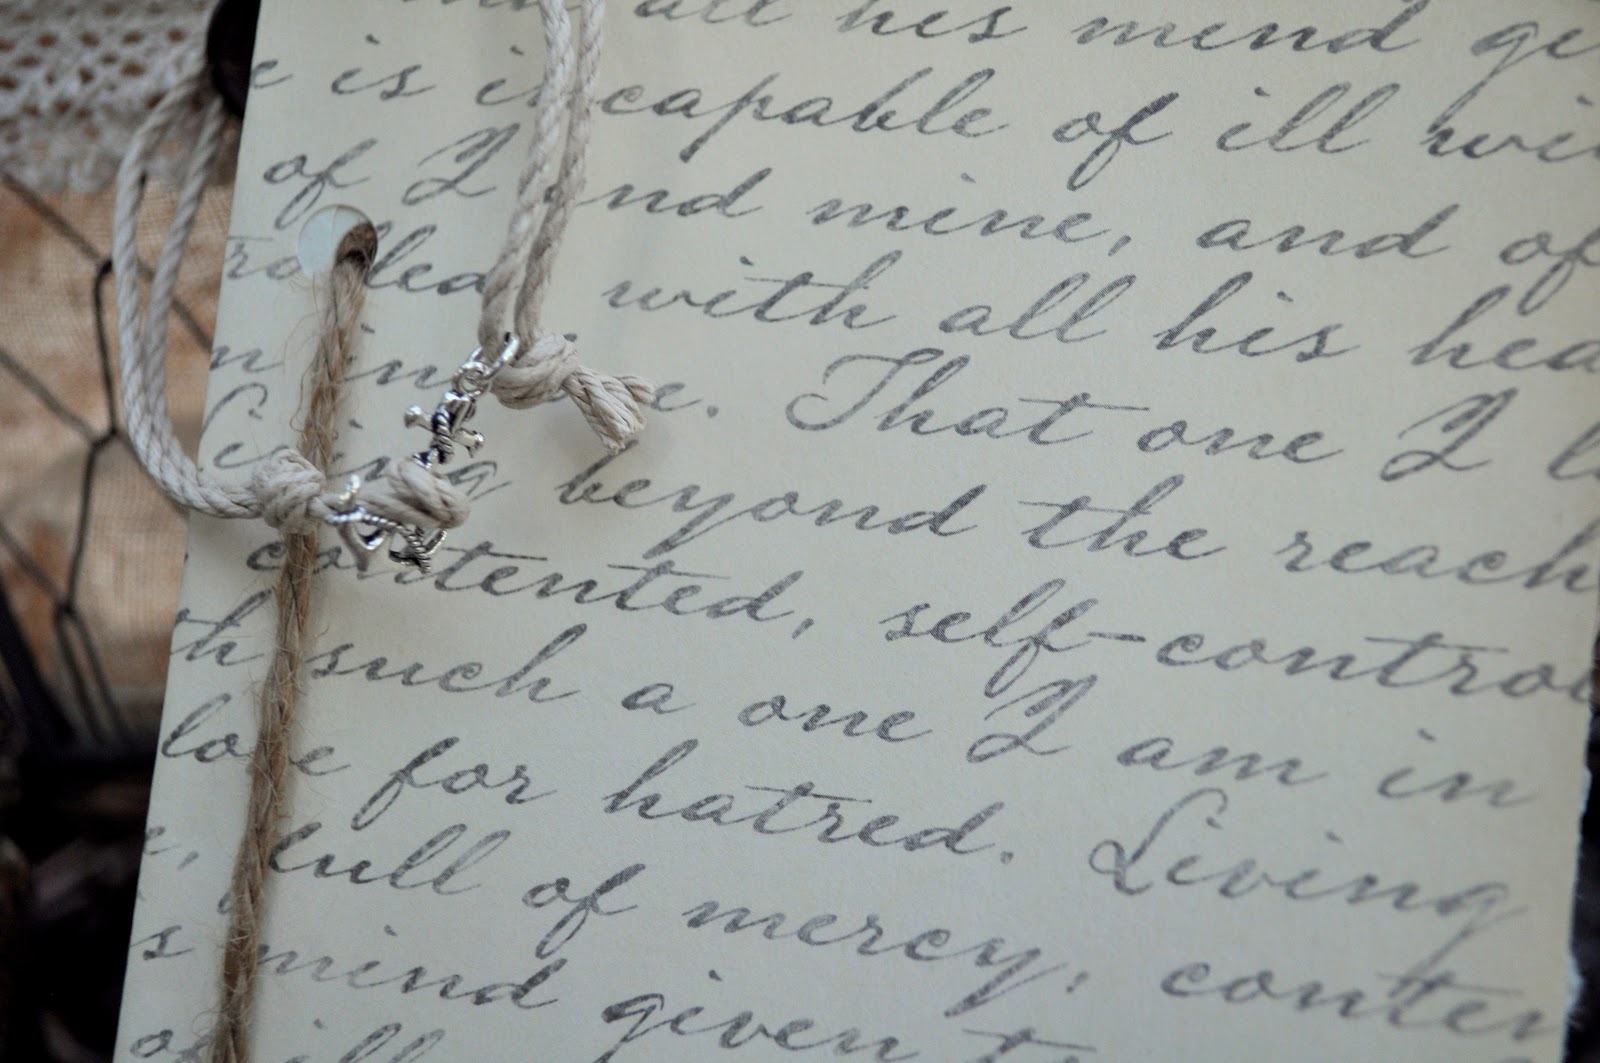 all his mind
is incapable of ill
of I and mine, and of
with all his
That one I
Living beyond the reach
contented, self-contro
such a one I am in
love for hatred. Living
full of mercy, conten
mind given
of ill